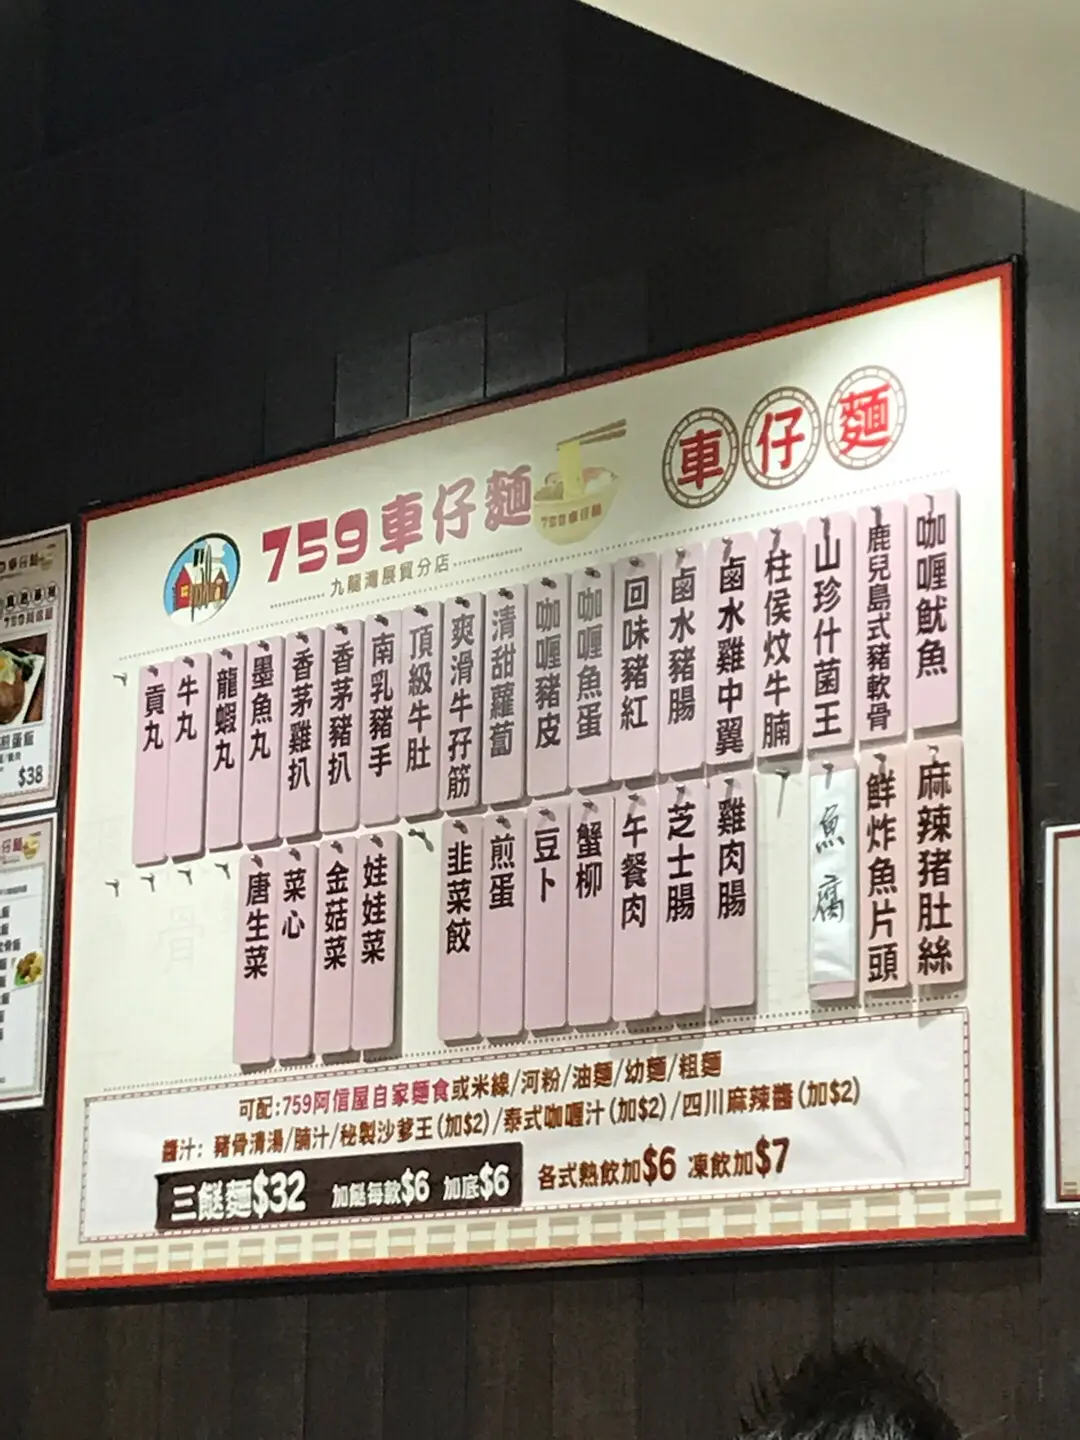 759車仔麵
九龍灣展貿分店
759車仔麵
車仔麵
咖喱魷魚
鹿兒島式豬軟骨
山珍什菌王
柱侯炆牛腩
鹵水雞中翼
鹵水豬腸
回味豬紅
咖喱魚蛋
咖喱豬皮
清甜蘿蔔
爽滑牛孖筋
頂級牛肚
南乳豬手
香茅豬扒
香茅雞扒
墨魚丸
龍蝦丸
牛丸
貢丸
麻辣猪肚絲
鮮炸魚片頭
魚腐
雞肉腸
芝士腸
午餐肉
蟹柳
豆卜
煎蛋
韭菜餃
娃娃菜
金菇菜
菜心
唐生菜
可配:759阿信屋自家麵食或米線/河粉/油麵/幼麵/粗麵
醬汁: 豬骨清湯/腩汁/秘製沙爹王(加$2)/泰式咖喱汁(加$2)/四川麻辣醬(加$2)
三餸麵$32 加餸每款$6 加底$6 各式熱飲加$6 凍飲加$7
煎蛋飯
$38